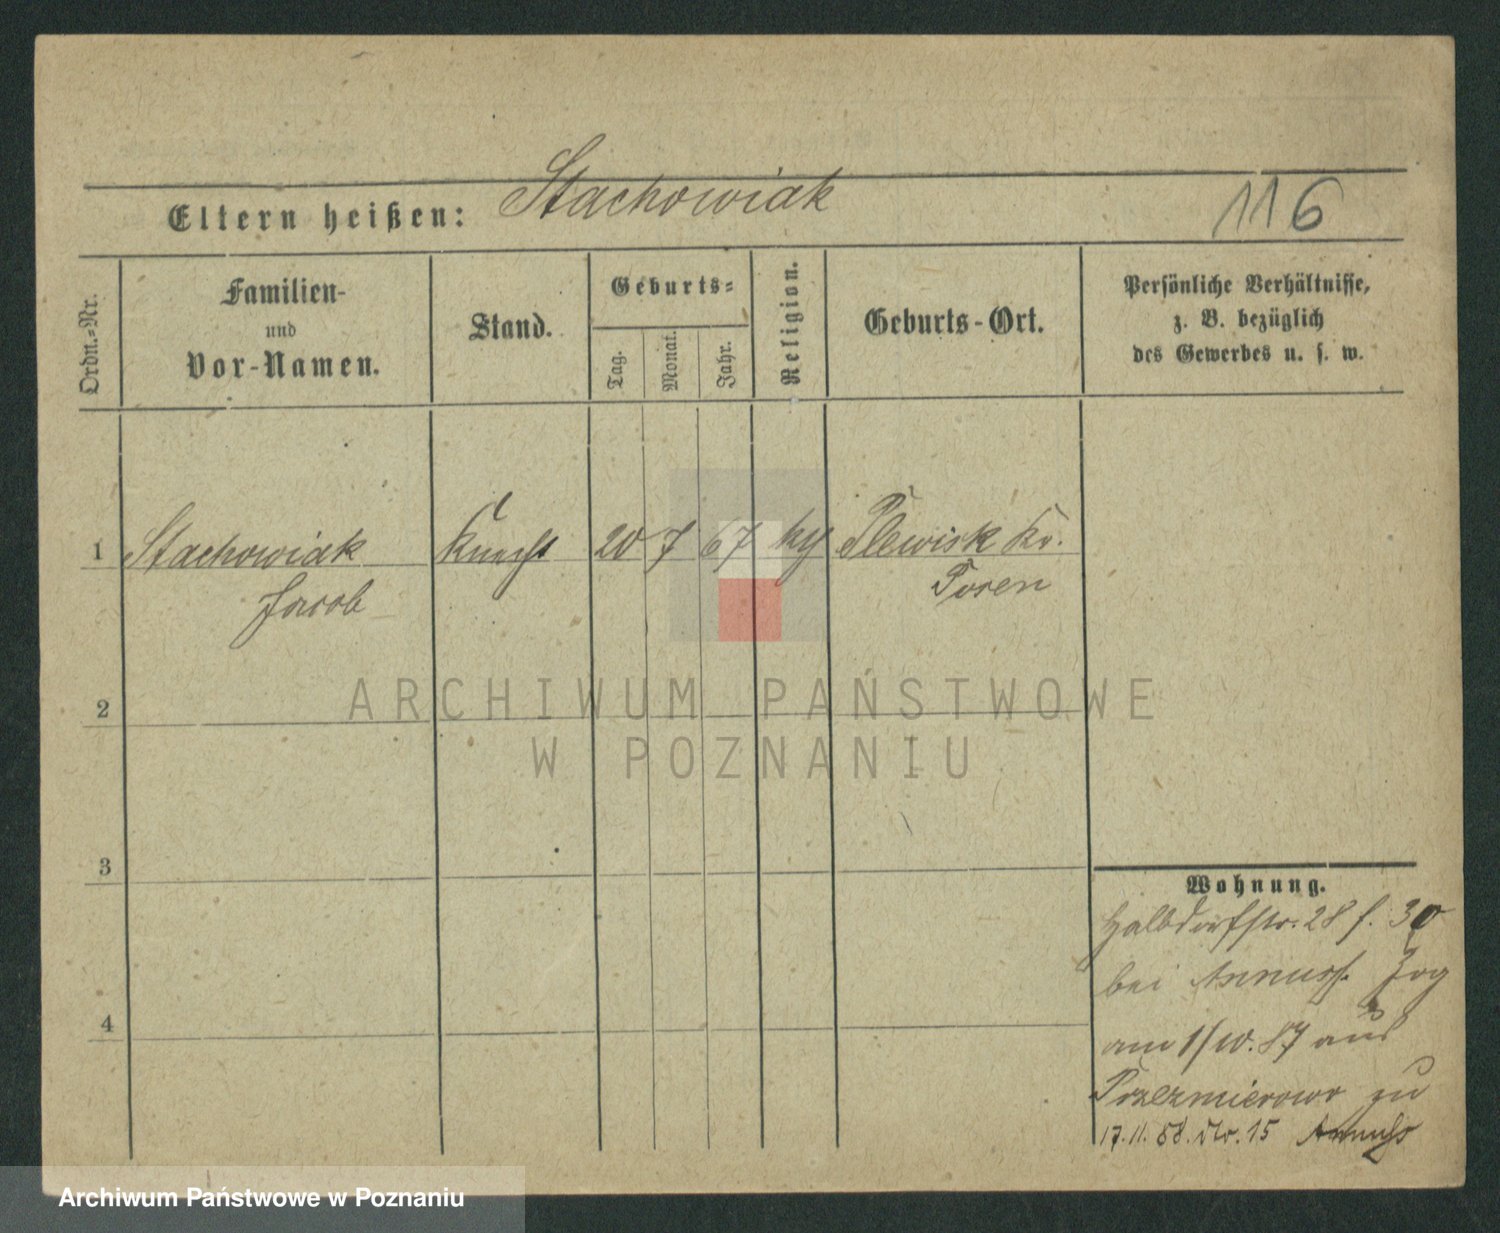 Eltern heißen: Stachowiak
116
Ordn.-Nr.
Familien-
und
Vor-Namen.
Stand.
Geburts-
Tag. Monat. Jahr.
Religion.
Geburts-Ort.
Persönliche Verhältnisse,
z. B. bezüglich
des Gewerbes u. s. w.
1 Stachowiak Knecht 20 7 67 Plewisk Kr.
Jacob Posen
ARCHIWUM PAŃSTWOWE
W POZNANIU
2
3
4
Wohnung.
Halbdorfstr. 28
bei Zog
am 1/10. 87 aus
Przezmierowo zu
17.11. 88. No. 15
Archiwum Państwowe w Poznaniu